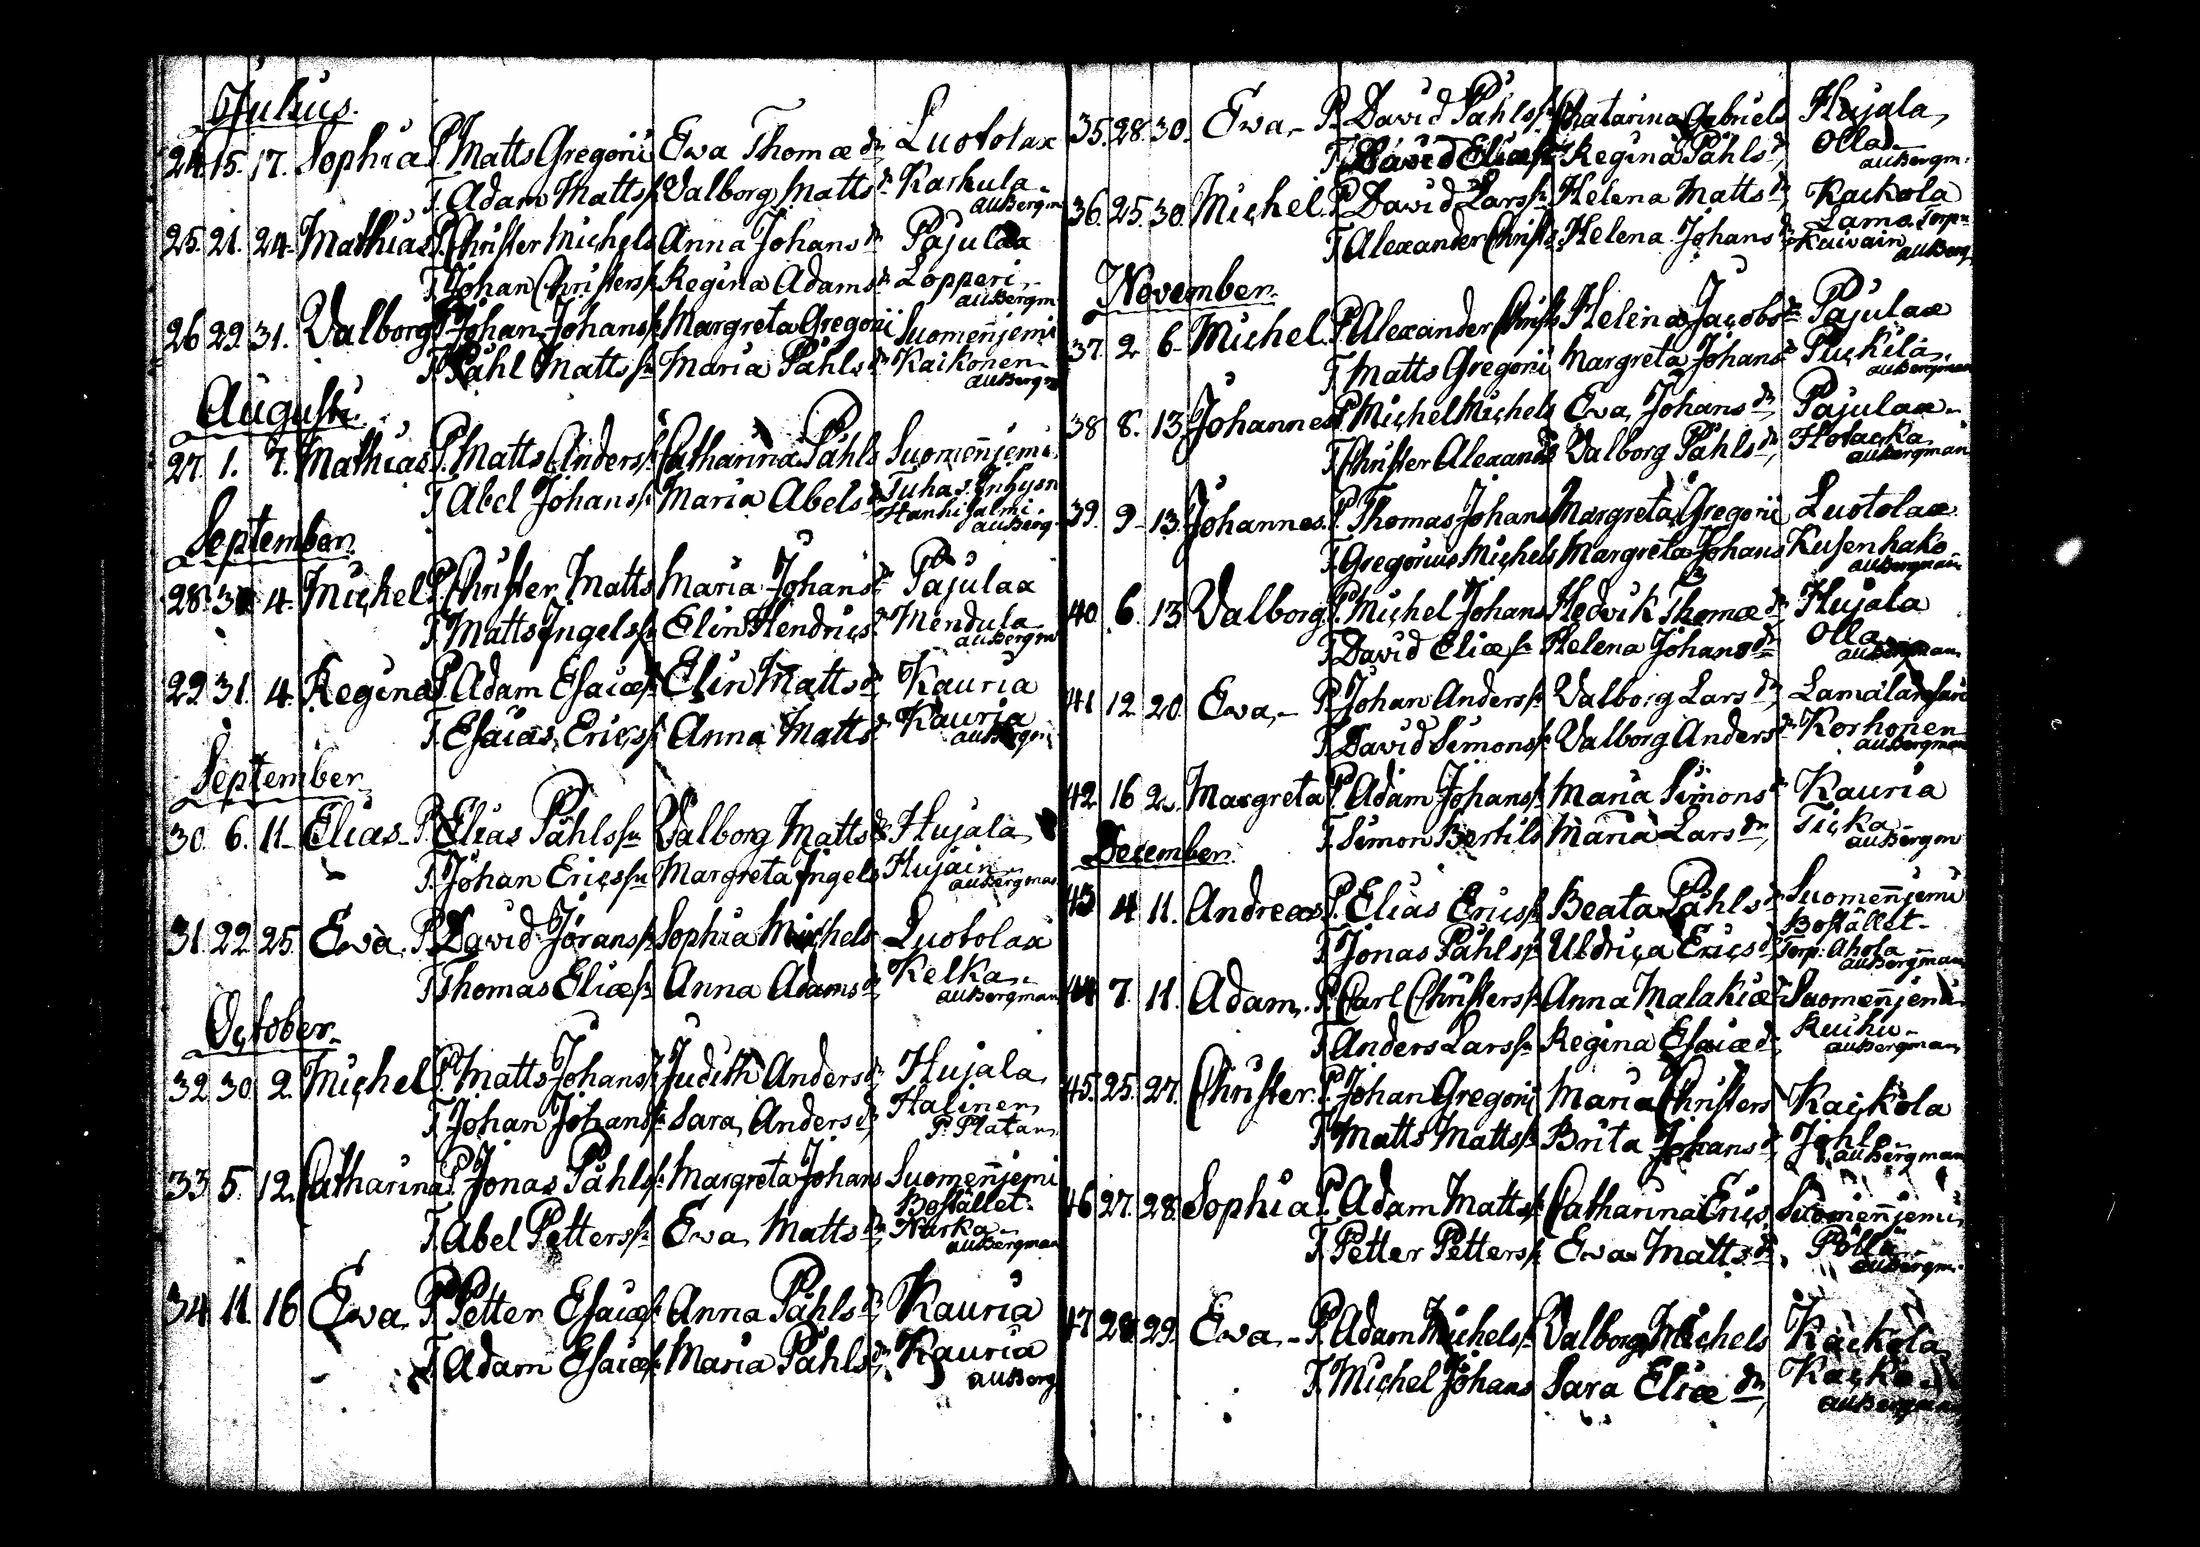 Julius.
24. 15. 17. Sophia P. Matts Gregorii Ewa Thomæ dr Luotolax
T. Adam Mattss: Valborg Matts dr Karkula. auBergm
25. 21. 24. Mathias P. Christer Michels Anna Johans dr Pajulax
T. Johan Christers: Regina Adams dr Lopperi. auBergm
26 29. 31. Valborg P. Johan Johanss: Margreta Gregorii Suomenjemi
T. Påhl Mattss: Maria Påhls dr Kaikonen auBergm
Augusti.
27. 1. 7. Mathias P. Matts Anderss: Catharina Påhls Suomenjemi
T. Abel Johanss: Maria Abels dr auBerg
September
28. 3 4. Michel P. Christer Matts Maria Johans dr Pajulax
T. Matts Ingelss: Elin Hendrics dr Mendula auBergm
29 31. 4. Regina P. Adam Esaiæs: Elin Matts dr Kauria
T. Esaias Ericss: Anna Matts dr Kauria auBergm
September
30. 6. 11. Elias P. Elias Påhlss: Valborg Matts dr Hujala
T. Johan Ericss: Margreta Ingels Hujain auBergman
31. 22. 25. Ewa P. David Jöranss: Sophia Michels Luotolax
T. Thomas Eliæs: Anna Adams dr Kelka. auBergman
October.
32 30. 2. Michel P. Matts Johans: Judith Anders dr Hujala
T. Johan Johans: Sara Anders dr Halinen P. Platan
33 5. 12. Catharina P. Jonas Påhls: Margreta Johans Suomenjemi Bostället.
T. Abel Petterss: Ewa Matts dr Nurka auBergman
34 11. 16 Ewa P. Petter Esaiæs: Anna Påhls dr Kauria
T. Adam Esaiæs: Maria Påhls dr Kauria auBerg
35. 28. 30. Ewa P. David Påhls: Chatarina Gabriels Hujala
T. David Eliæs: Regina Påhls dr Olla auBergm.
36. 25. 30. Michel P. David Larss: Helena Matts dr Kackola
T. Alexander Christ: Helena Johans dr Kuivain auBerg
November.
37. 2 6. Michel P. Alexander Christ: Helena Jacobs dr Pajulax
T. Matts Gregorii Margreta Johans dr Puckila auBergman
38 8. 13 Johannes P. Michel Michels Ewa Johans dr Pajulax
T. Christer Alexand: Valborg Påhls dr Hotacka auBergman
39. 9. 13 Johannes. P. Thomas Johans Margreta Gregorii Luotolax
T. Gregorius Michels Margreta Johans Kusenhako auBergman
40. 6. 13 Valborg P. Michel Johans Hedvik Thomæ dr Hujala
T. David Eliæs: Helena Johans dr Olla auBergman
41 12 20 Ewa P. Johan Anderss: Valborg Lars dr
T. David Simonss: Valborg Anders dr Korhonen auBergman
42. 16 2. Margreta P. Adam Johanss: Maria Simons dr Kauria
T. Simon Bertils Maria Lars dr Ticka auBergm
December.
43 4 11. Andreas P. Elias Ericss: Beata Påhls dr Suomenjemi Bostället
T. Jonas Påhlss: Uldrica Erics dr Torp. Ahola auBergman
44 7. 11. Adam. P. Carl Christers: Anna Malakiæ dr Suomenjemi
T. Anders Larss: Regina Esaiæ dr auBergman
45. 25. 27. Christer. P. Johan Gregorii Maria Christers Kackola
T. Matts Mattss: Brita Johans dr auBergman
46 27. 28. Sophia P. Adam Mattss: Catharina Erics Suomenjemi
T. Petter Petterss: Ewa Matts dr Pöllä auBergm.
47 28. 29. Ewa P. Adam Michelss: Valborg Michels Kackola
T. Michel Johans Sara Eliæ dr Kacko auBergman